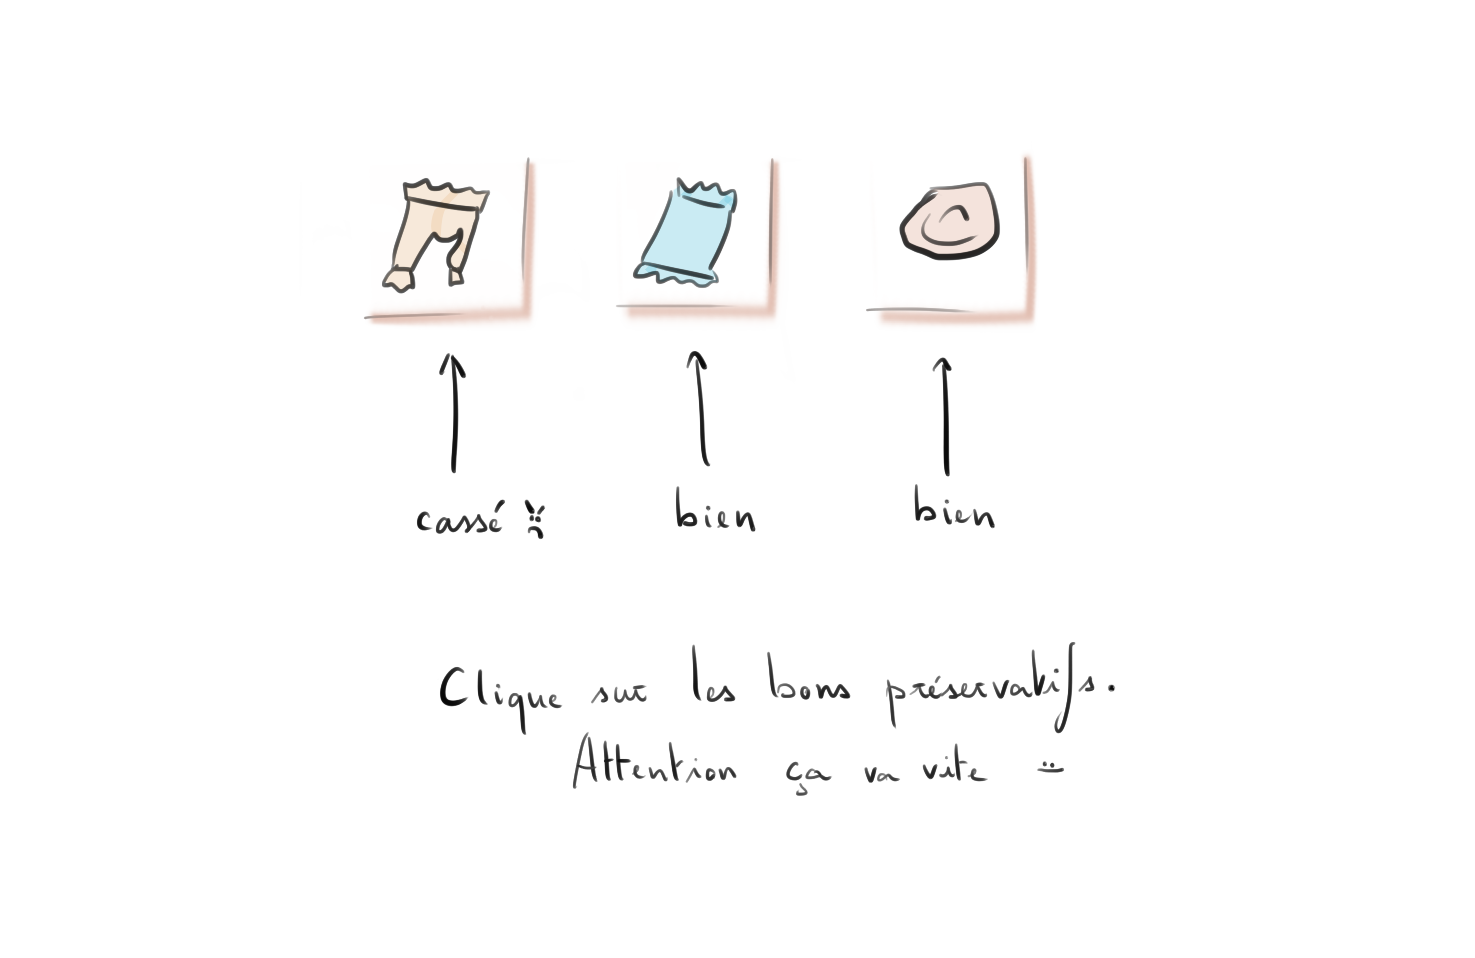 cassé
bien
bien
Clique sur les bons préservatifs.
Attention ça va vite